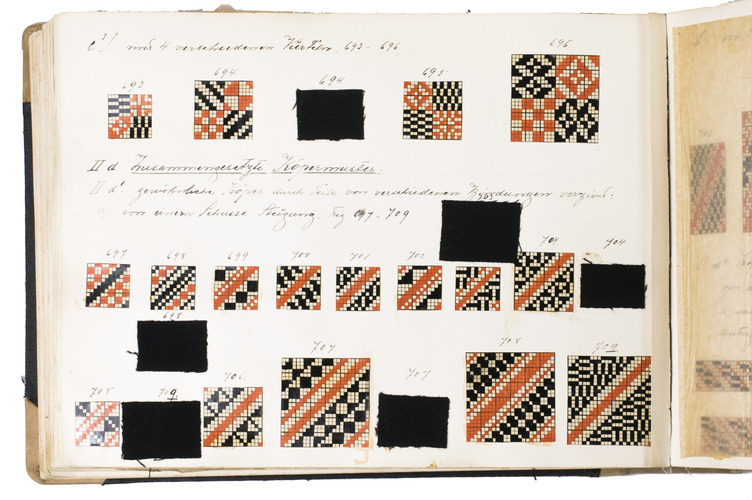 c³/ mit 4 verschiedenen Vierteln. 693 - 696
693 694 694 695 696
II d. Zusammengesetzte Köpermuster.
II d¹ gewöhnliche Köper durch von verschiedenen Bindungen verziert:
a). von einem Schusse Steigung Fig 697 - 709
697 698 699 700 701 702 704 704
698
705 709 706. 707 707 708 709